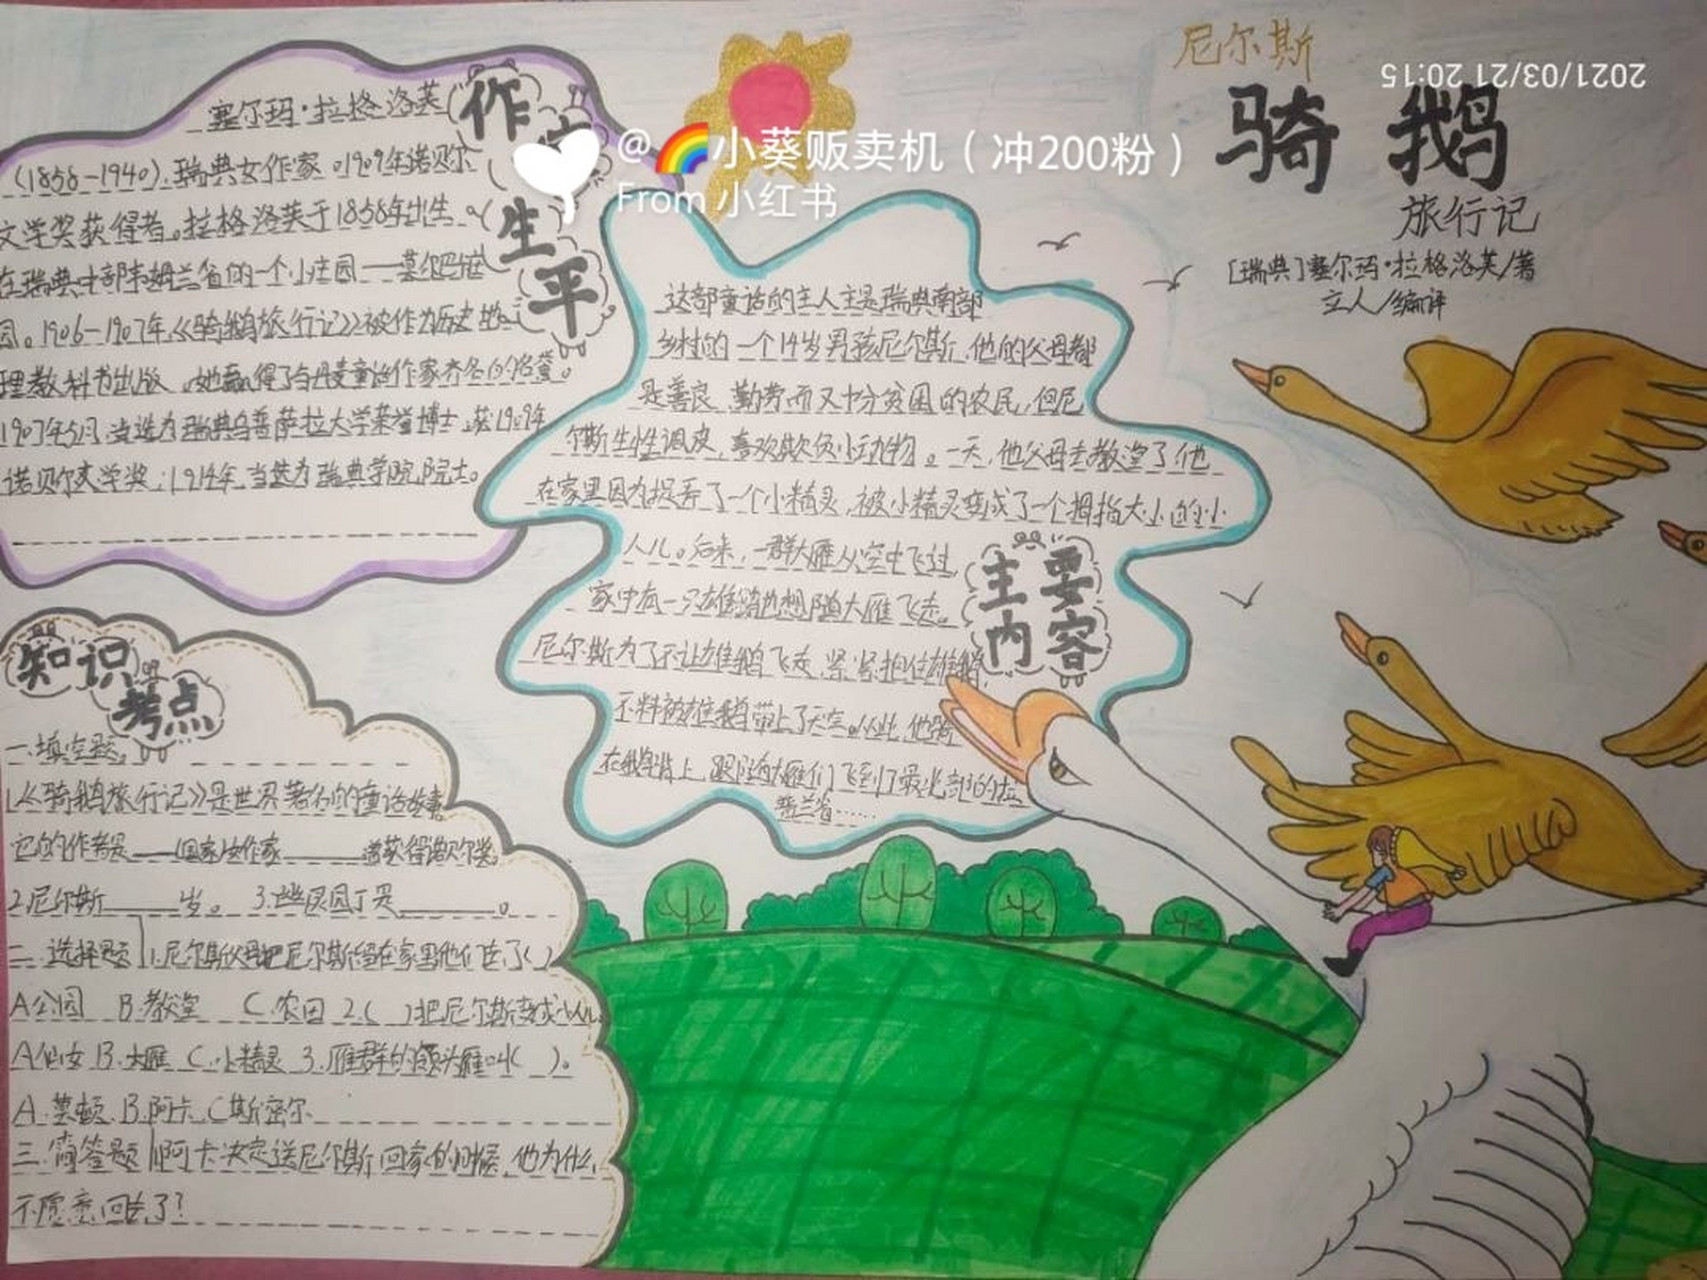 尼尔斯
骑鹅
旅行记
[瑞典]塞尔玛·拉格洛芙/著
立人/编译
2021/03/21 20:15
@🌈小葵贩卖机（冲200粉）
From 小红书
作家生平
塞尔玛·拉格洛芙
(1858-1940).瑞典女作家。1909年诺贝尔
文学奖获得者。拉格洛芙于1858年出生
在瑞典中部韦姆兰省的一个小庄园——莫尔巴卡庄
园。1906-1907年,《骑鹅旅行记》被作为历史地
理教科书出版。她赢得了与丹麦童话作家齐名的名誉。
1907年5月,当选为瑞典乌普萨拉大学荣誉博士.获1909年
诺贝尔文学奖;1914年,当选为瑞典学院院士。
主要内容
这部童话的主人主是瑞典南部
乡村的一个14岁男孩尼尔斯.他的父母都
是善良,勤劳而又十分贫困的农民,但尼
尔斯生性调皮,喜欢欺负小动物。一天,他父母去教堂了他
在家里因为捉弄了一个小精灵,被小精灵变成了一个拇指大小的小
人儿。后来,一群大雁从空中飞过,
家中有一只雄鹅也想随大雁飞走。
尼尔斯为了不让雄鹅飞走,紧紧抱住雄鹅,
不料被雄鹅带上了天空。从此,他骑
在鹅背上,跟随大雁们飞到了最北部的拉
普兰省……
知识考点
一.填空题。
1.《骑鹅旅行记》是世界著名的童话故事,
它的作者是____(国家)女作家______,曾获得诺贝尔奖。
2.尼尔斯______岁。 3.幽灵园丁是________。
二.选择题 1.尼尔斯父母把尼尔斯留在家里他们去了( )
A公园 B.教堂 C.农田 2.( )把尼尔斯变成小人儿.
A仙女 B.大雁 C.小精灵 3.雁群的领头雁叫( )。
A.莫顿.B.阿卡.C斯密尔
三.简答题 1.阿卡决定送尼尔斯回家的时候,他为什么
不愿意回去了?